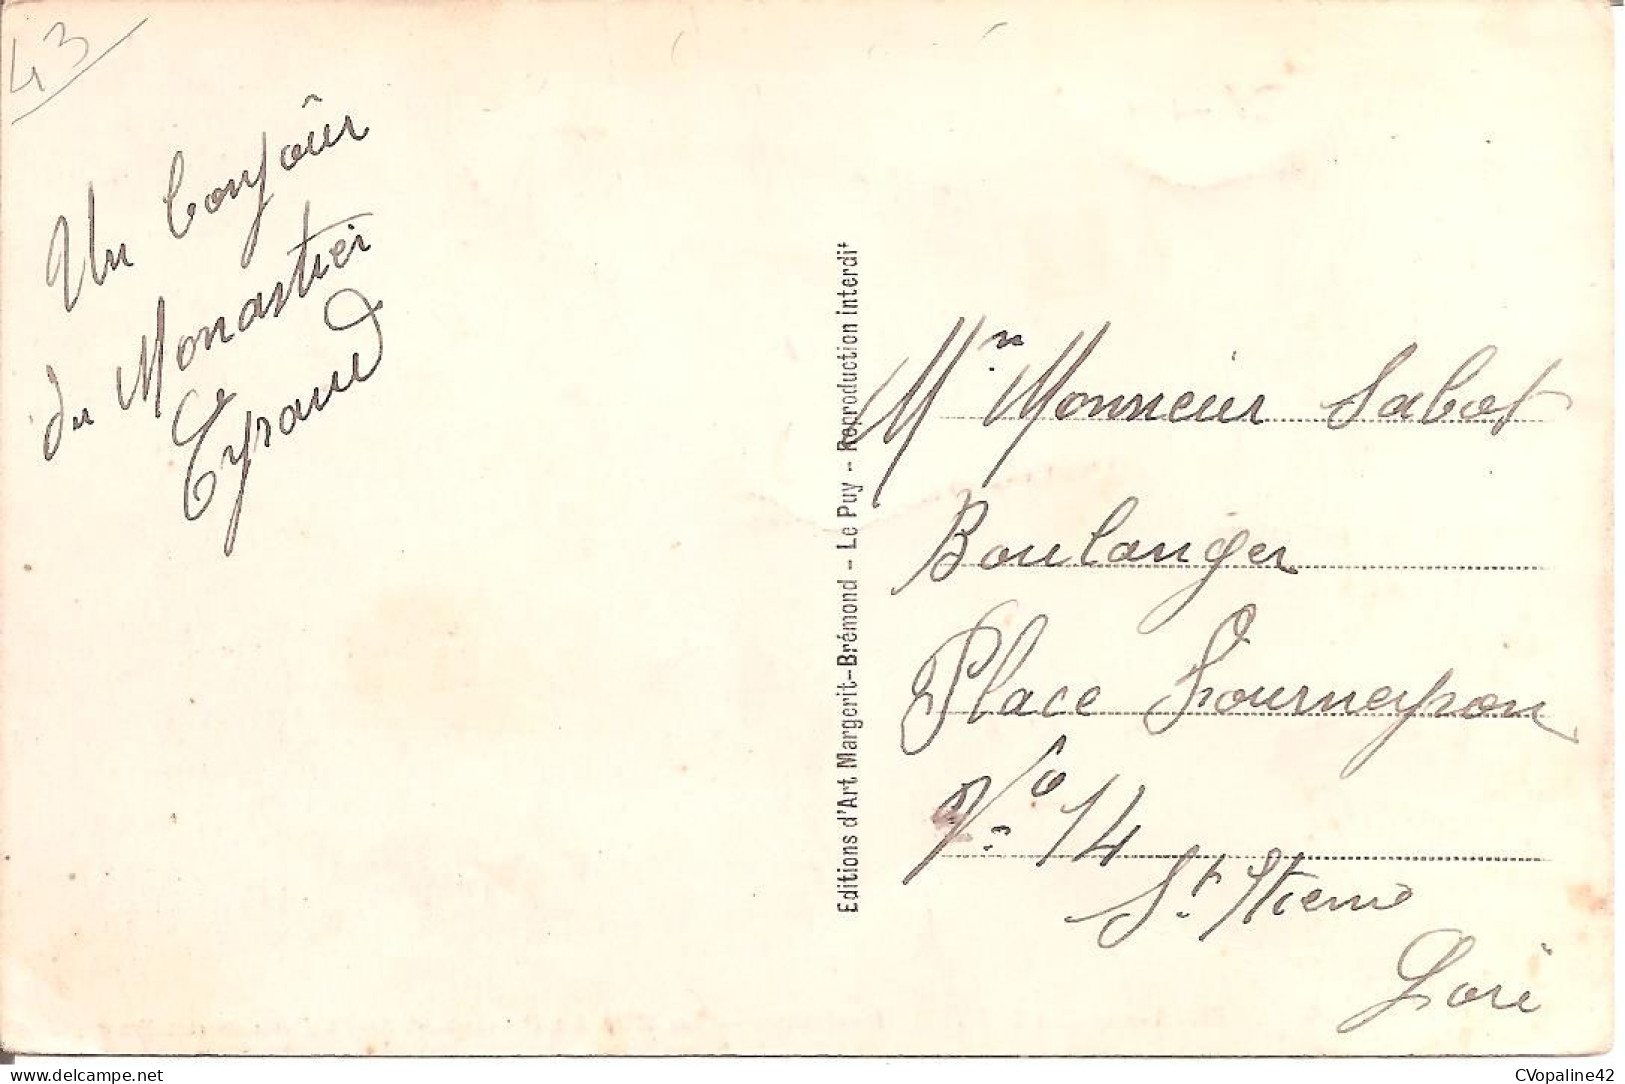 43
Un bonjoûr
du Monastier
Eyraud
Editions d'Art Margerit-Brémond - Le Puy - Reproduction interdit
Mr Monsieur Sabot
Boulanger
Place Fourneyron
No 14
St. Etienne
Loire
CVopaline42